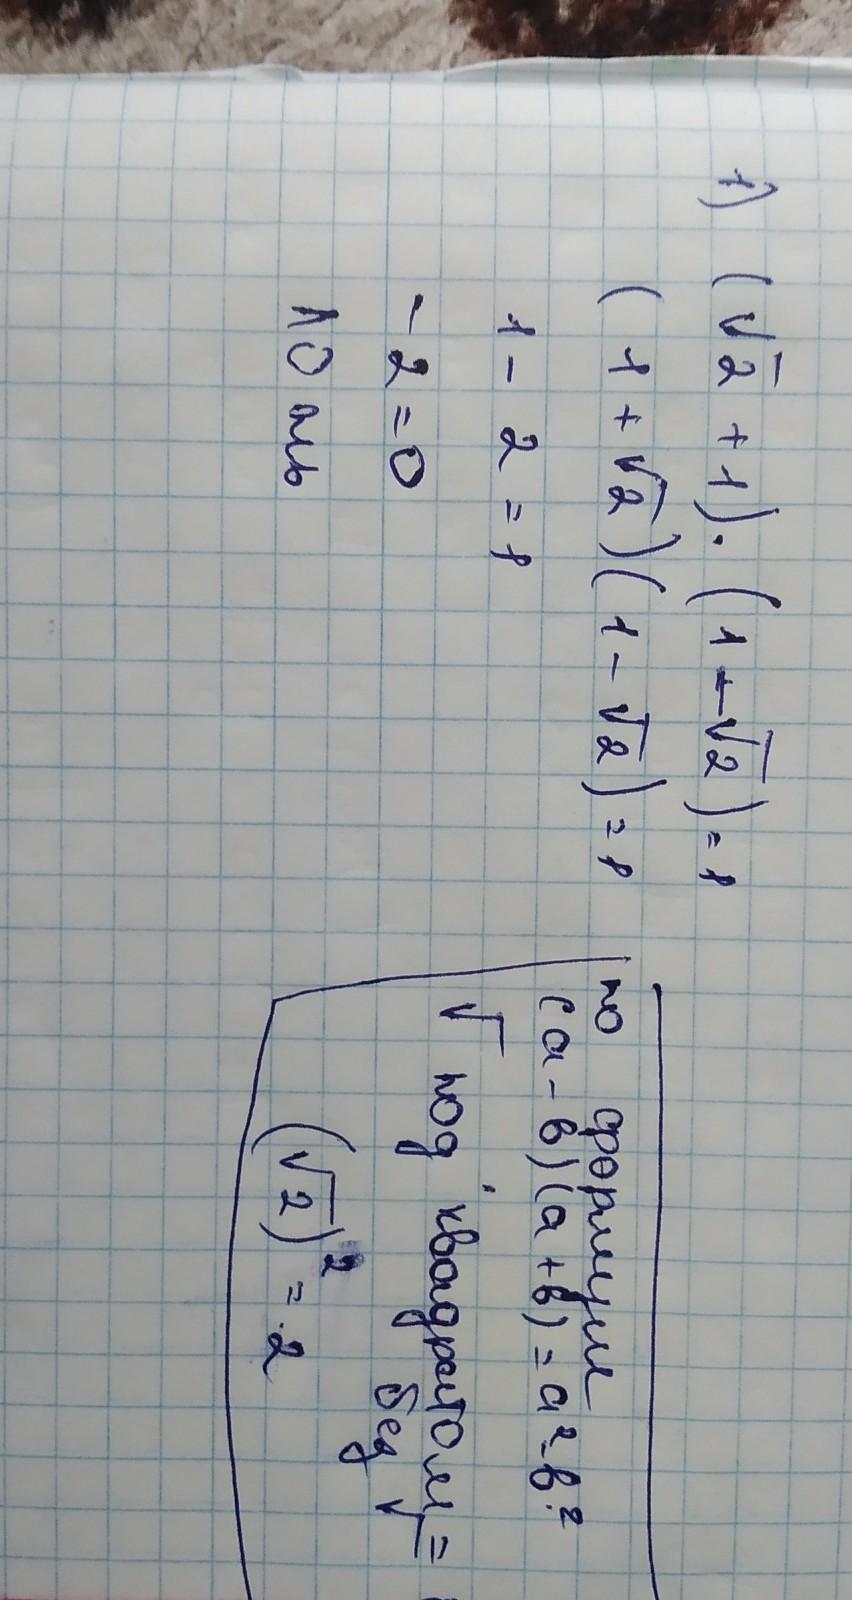 1) (√2 + 1) · (1 - √2) = 1
(1 + √2)(1 - √2) = 1
1 - 2 = 1
-2 = 0
по формуле
(a - b)(a + b) = a² - b²
√ под квадратом =
без √
(√2)² = 2